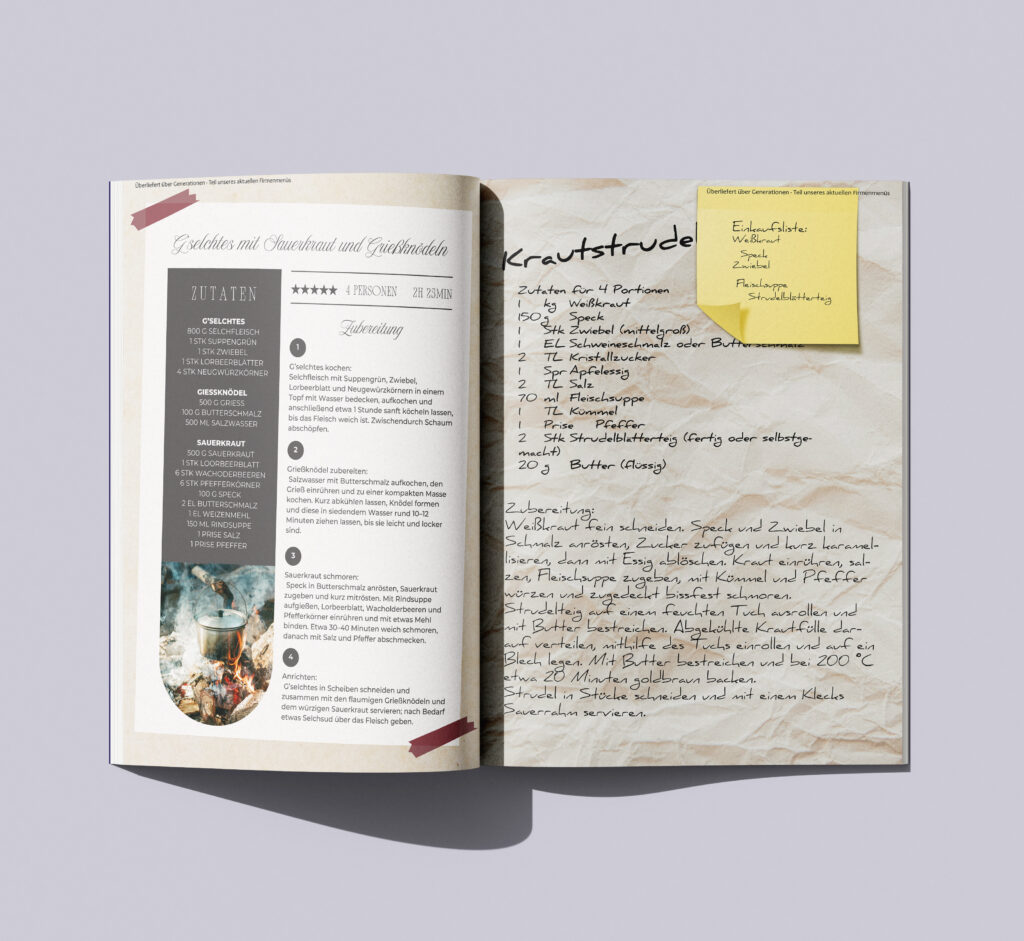 Überliefert über Generationen - Teil unseres aktuellen Firmenmenüs
G'selchtes mit Sauerkraut und Grießknödeln
ZUTATEN
G'SELCHTES
800 G SELCHFLEISCH
1 STK SUPPENGRÜN
1 STK ZWIEBEL
1 STK LORBEERBLÄTTER
4 STK NEUGWÜRZKÖRNER
GIESSKNÖDEL
500 G GRIESS
100 G BUTTERSCHMALZ
500 ML SALZWASSER
SAUERKRAUT
500 G SAUERKRAUT
1 STK LOORBEERBLATT
6 STK WACHODERBEEREN
6 STK PFEFFERKÖRNER
100 G SPECK
2 EL BUTTERSCHMALZ
1 EL WEIZENMEHL
150 ML RINDSUPPE
1 PRISE SALZ
1 PRISE PFEFFER
★★★★★ 4 PERSONEN 2H 23MIN
Zubereitung
1
G'selchtes kochen:
Selchfleisch mit Suppengrün, Zwiebel,
Lorbeerblatt und Neugewürzkörnern in einem
Topf mit Wasser bedecken, aufkochen und
anschließend etwa 1 Stunde sanft köcheln lassen,
bis das Fleisch weich ist. Zwischendurch Schaum
abschöpfen.
2
Grießknödel zubereiten:
Salzwasser mit Butterschmalz aufkochen, den
Grieß einrühren und zu einer kompakten Masse
kochen. Kurz abkühlen lassen, Knödel formen
und diese in siedendem Wasser rund 10–12
Minuten ziehen lassen, bis sie leicht und locker
sind.
3
Sauerkraut schmoren:
Speck in Butterschmalz anrösten, Sauerkraut
zugeben und kurz mitrösten. Mit Rindsuppe
aufgießen, Lorbeerblatt, Wacholderbeeren und
Pfefferkörner einrühren und mit etwas Mehl
binden. Etwa 30–40 Minuten weich schmoren,
danach mit Salz und Pfeffer abschmecken.
4
Anrichten:
G'selchtes in Scheiben schneiden und
zusammen mit den flaumigen Grießknödeln und
dem würzigen Sauerkraut servieren; nach Bedarf
etwas Selchsud über das Fleisch geben.
Überliefert über Generationen - Teil unseres aktuellen Firmenmenüs
Einkaufsliste:
Weißkraut
Speck
Zwiebel
Fleischsuppe
Strudelblätterteig
Krautstrudel
Zutaten für 4 Portionen
1 kg Weißkraut
150 g Speck
1 Stk Zwiebel (mittelgroß)
1 EL Schweineschmalz oder Butterschmalz
2 TL Kristallzucker
1 Spr Apfelessig
2 TL Salz
70 ml Fleischsuppe
1 TL Kümmel
1 Prise Pfeffer
2 Stk Strudelblätterteig (fertig oder selbstge-
macht)
20 g Butter (flüssig)
Zubereitung:
Weißkraut fein schneiden. Speck und Zwiebel in
Schmalz anrösten, Zucker zufügen und kurz karamel-
lisieren, dann mit Essig ablöschen. Kraut einrühren, sal-
zen, Fleischsuppe zugeben, mit Kümmel und Pfeffer
würzen und zugedeckt bissfest schmoren.
Strudelteig auf einem feuchten Tuch ausrollen und
mit Butter bestreichen. Abgekühlte Krautfülle dar-
auf verteilen, mithilfe des Tuchs einrollen und auf ein
Blech legen. Mit Butter bestreichen und bei 200 °C
etwa 20 Minuten goldbraun backen.
Strudel in Stücke schneiden und mit einem Klecks
Sauerrahm servieren.